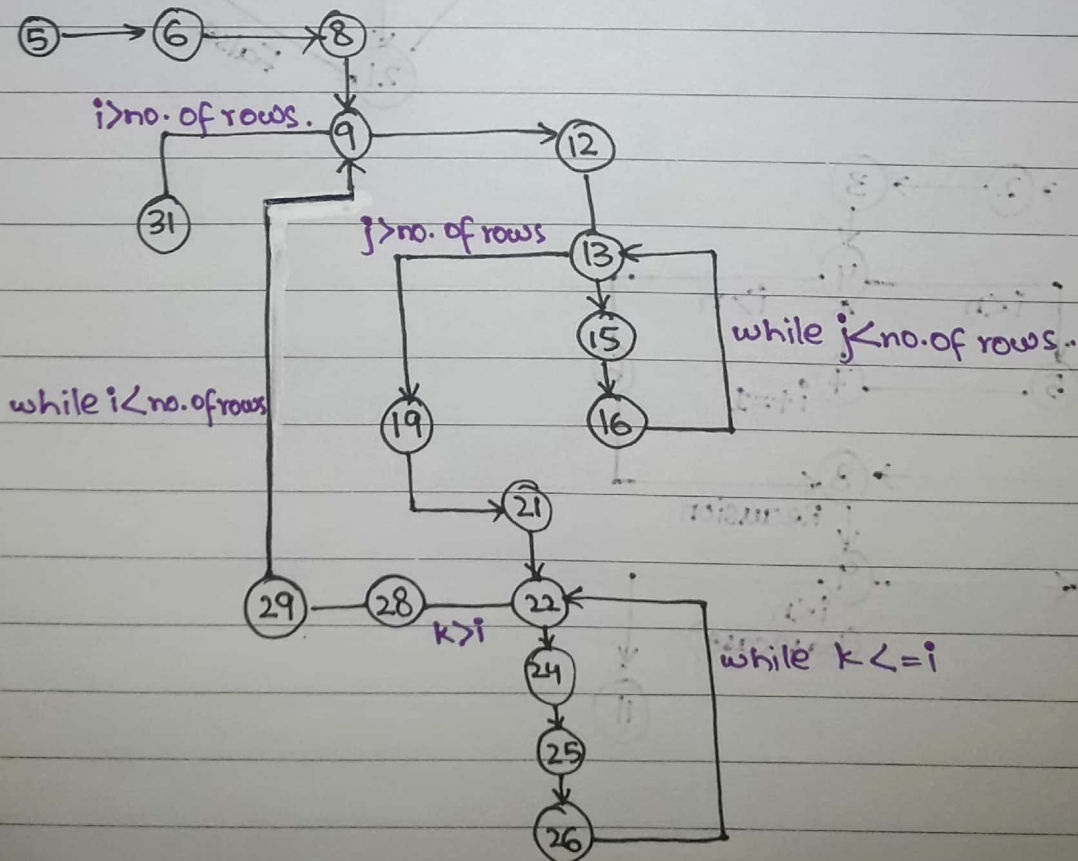 5 6 8
i>no. of rows. 9 12
31
j>no. of rows 13
15 while j<no. of rows.
while i<no. of rows 19 16
21
29 28 22
k>i
24 while k<=i
25
26